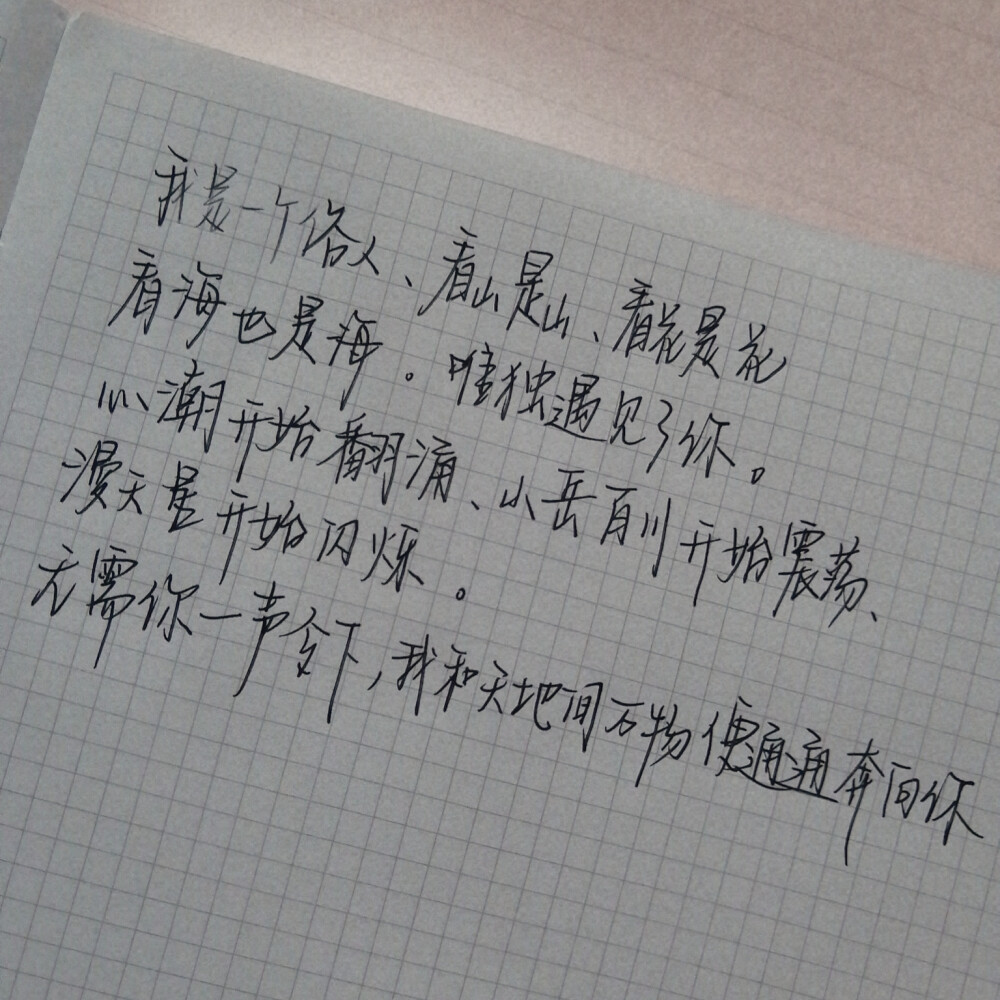 我是一个俗人、看山是山、看花是花
看海也是海。唯独遇见了你。
心潮开始翻涌、山岳百川开始震荡、
漫天星开始闪烁。
无需你一声令下,我和天地间万物便通通奔向你